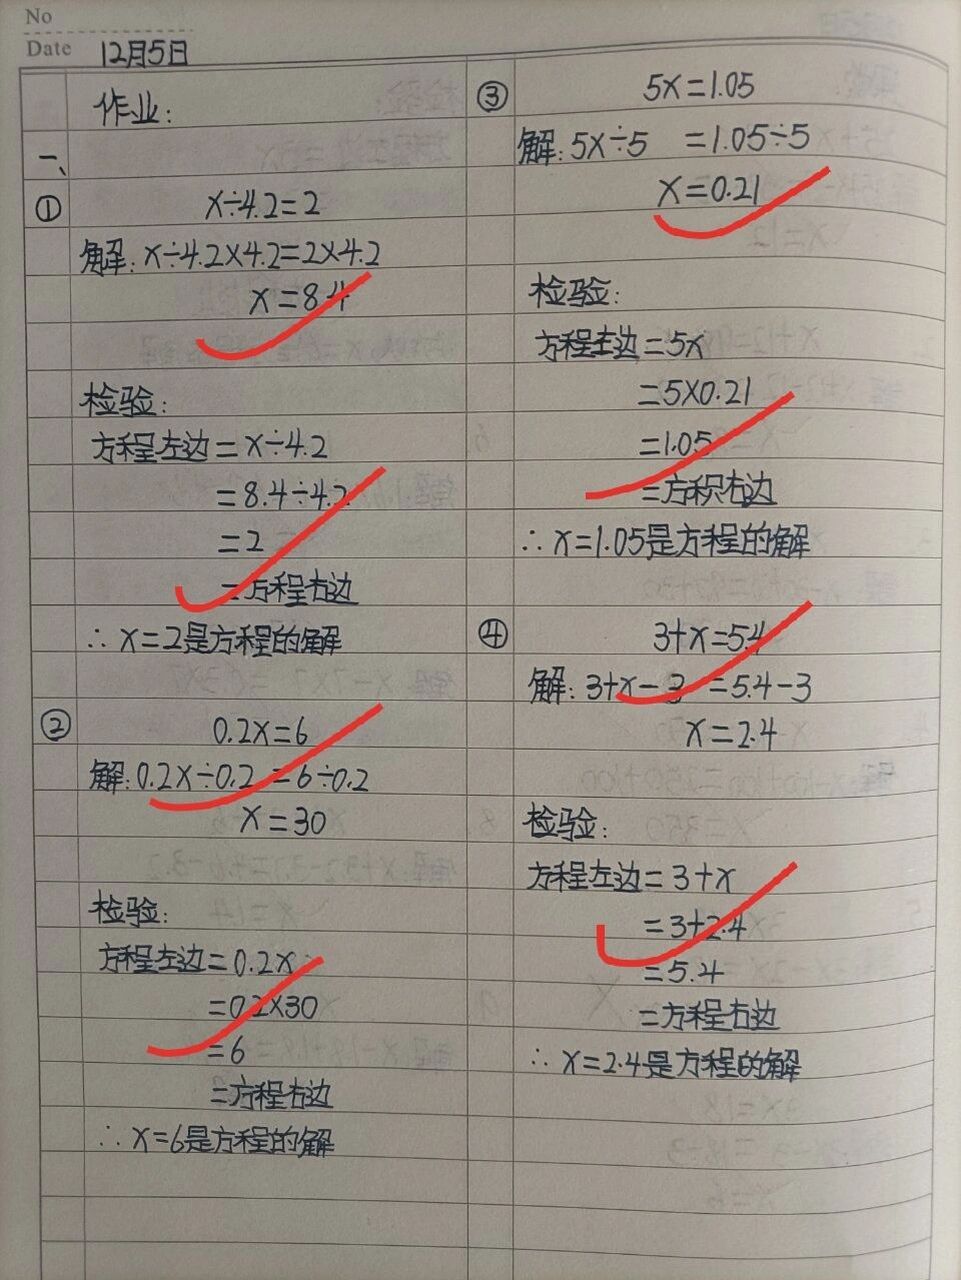 No
Date 12月5日
作业:
一、
① x÷4.2=2
解: x÷4.2×4.2=2×4.2
x=8.4
检验:
方程左边=x÷4.2
=8.4÷4.2
=2
=方程右边
∴ x=2是方程的解
② 0.2x=6
解: 0.2x÷0.2=6÷0.2
x=30
检验:
方程左边=0.2x
=0.2×30
=6
=方程右边
∴ x=6是方程的解
③ 5x=1.05
解: 5x÷5 =1.05÷5
x=0.21
检验:
方程左边=5x
=5×0.21
=1.05
=方积右边
∴ x=1.05是方程的解
④ 3+x=5.4
解: 3+x-3 =5.4-3
x=2.4
检验:
方程左边=3+x
=3+2.4
=5.4
=方程右边
∴ x=2.4是方程的解